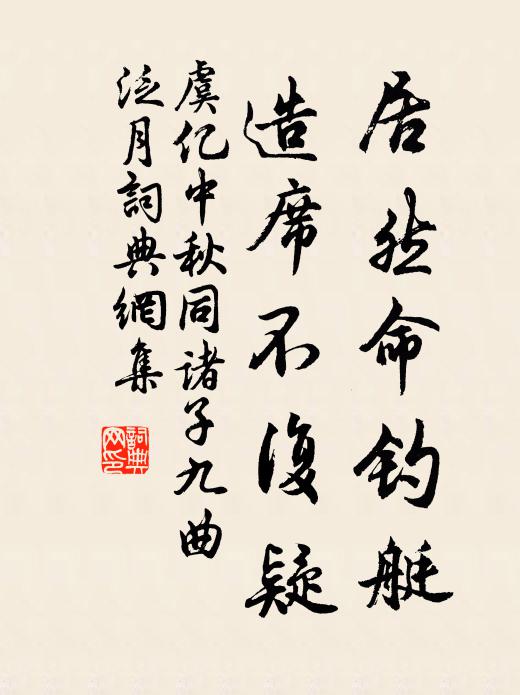 居然命钓艇
造席不復疑
虞仡中秋同諸子九曲
泛月詞典網集
詞典
网印